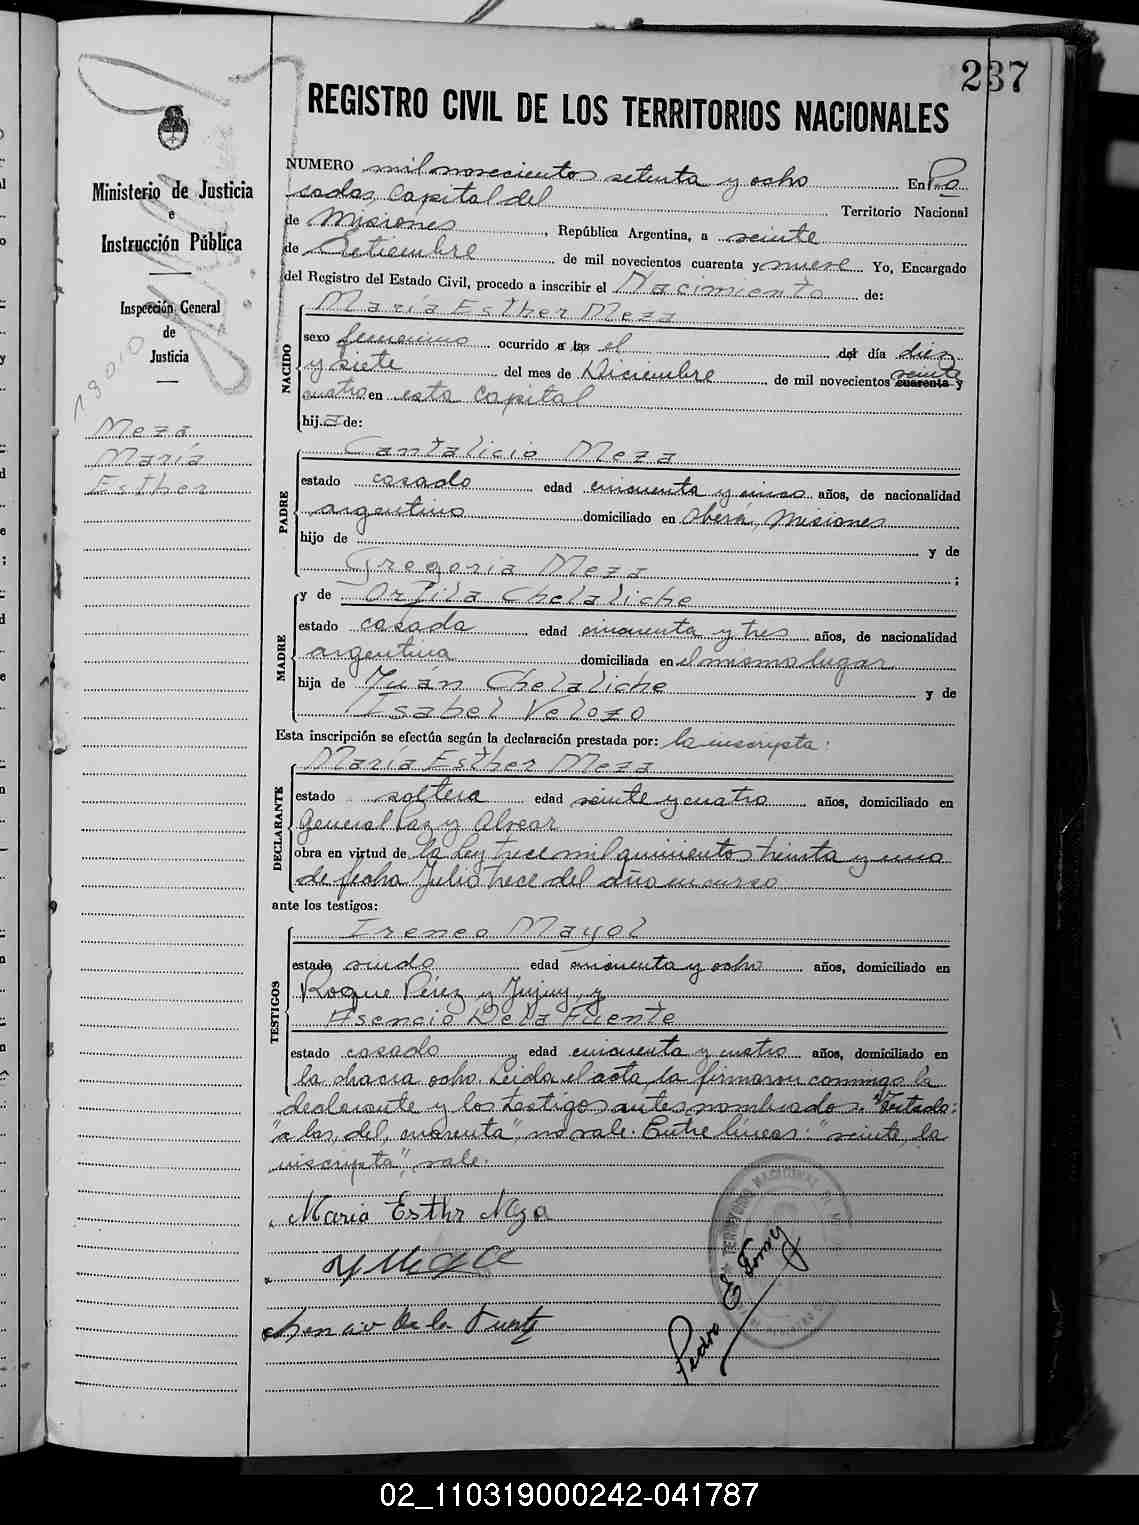 237
REGISTRO CIVIL DE LOS TERRITORIOS NACIONALES
Ministerio de Justicia
e
Instrucción Pública
Inspección General
de
Justicia
Meza
María
Esther
NUMERO mil novecientos setenta y ocho En Po
sadas, capital del Territorio Nacional
de Misiones, República Argentina, a veinte
de Setiembre de mil novecientos cuarenta y nueve Yo, Encargado
del Registro del Estado Civil, procedo a inscribir el Nacimiento de:
María Esther Meza
NACIDO
sexo femenino ocurrido a las el del día diez
y siete del mes de Diciembre de mil novecientos cuarenta y veinte
cuatro en esta capital
hija de:
Cantalicio Meza
PADRE
estado casado edad cincuenta y cinco años, de nacionalidad
argentino domiciliado en Oberá, Misiones
hijo de y de
Gregoria Meza ;
y de Orfila Chelaliche
MADRE
estado casada edad cincuenta y tres años, de nacionalidad
argentina domiciliada en el mismo lugar
hija de Juán Chelaliche y de
Isabel Velozo
Esta inscripción se efectúa según la declaración prestada por: la inscripta:
María Esther Meza
DECLARANTE
estado soltera edad veinte y cuatro años, domiciliado en
General Paz y Alvear
obra en virtud de la Ley trece mil quinientos treinta y uno
de fecha Julio trece del año en curso
ante los testigos:
Ireneo Mayol
TESTIGOS
estado viudo edad cincuenta y ocho años, domiciliado en
Roque Pérez y Jujuy, y
Asencio De la Fuente
estado casado edad cincuenta y cuatro años, domiciliado en
la chacra ocho. Leida el acta, la firmaron conmigo la
declarante y los testigos antes nombrados. Testado:
"a las, del, cuarenta", no vale. Entre líneas: "veinte, la
inscripta", vale.
Maria Esthr Mza
Asencio De la Fuente
TERRITORIO NACIONAL
Pedro E
02_110319000242-041787